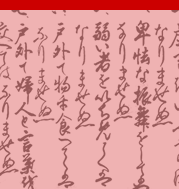 なりませぬ
卑怯な振舞をして
なりませぬ
弱い者をいぢめて
なりませぬ
戸外で物を食べて
なりませぬ
戸外で婦人と言葉
なりませぬ